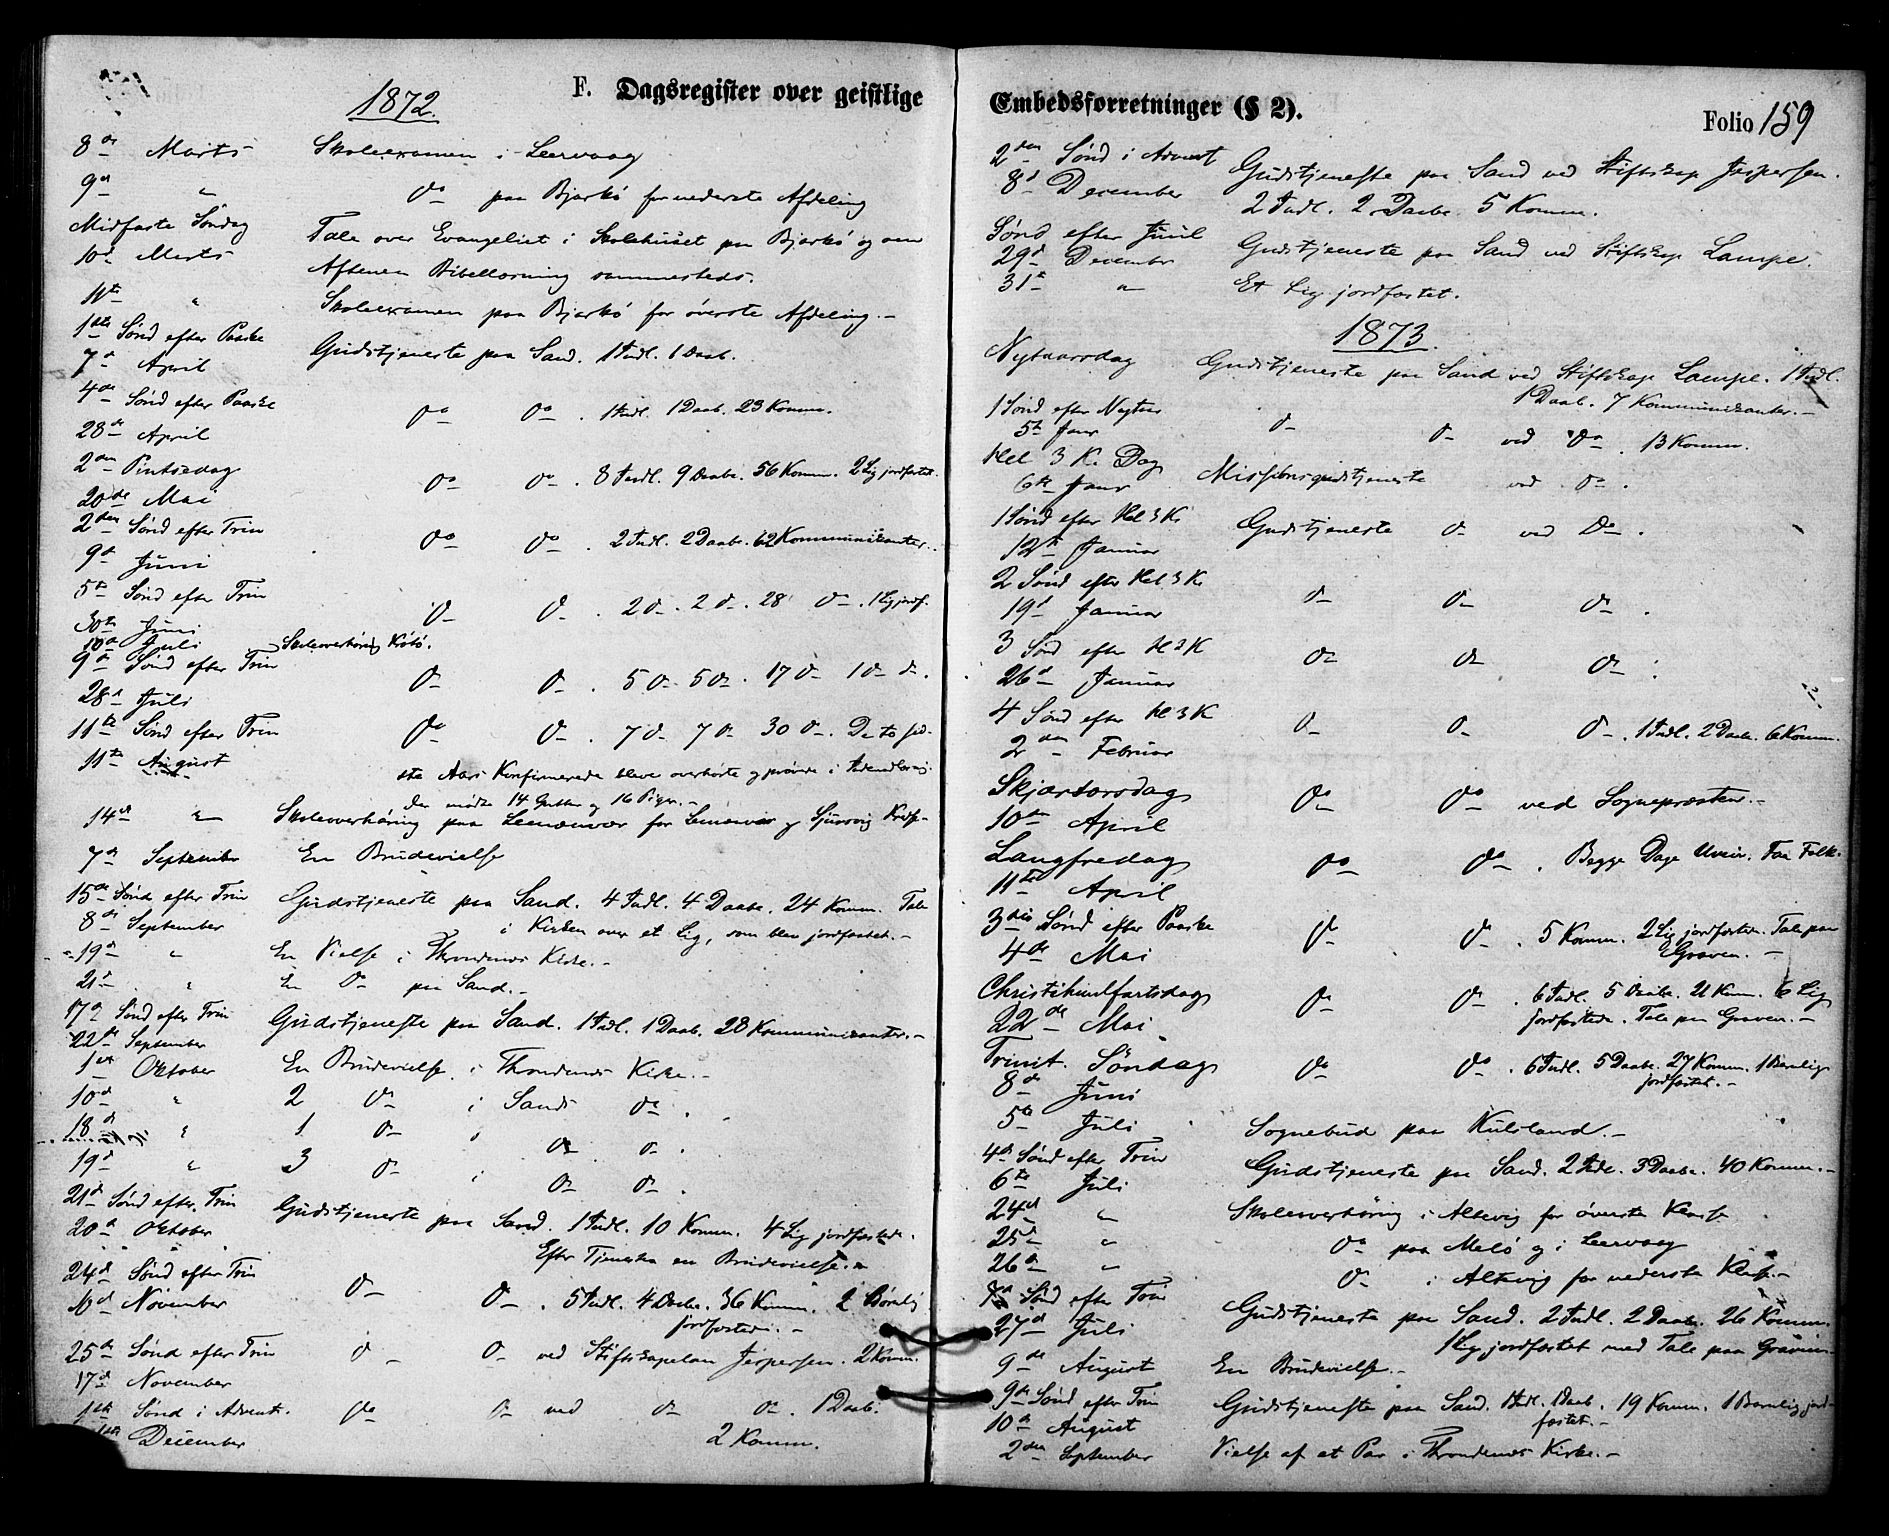 F. Dagsregister over geistlige
1872.
8de Marts Skoleexamen i Leervaag
9de " do paa Bjarkö for nederste Afdeling
Midfaste Söndag
10de Marts Tale over Evangeliet i Skolehuset paa Bjarkö og om
Aftenen Bibellæsning sammesteds.
11te " Skoleexamen paa Bjarkö for överste Afdeling.-
1ste Sönd efter Paaske
7de April Gudstjeneste paa Sand. 1 Indl. 1 Daab.
4de Sönd efter Paaske
28de April do do . 1 Indl. 1 Daab. 23 Komm.
2den Pintsedag
20de Mai do do . 8 Indl. 9 Daabe. 56 Komm. 2 Lig jordfæstet.
2den Sönd efter Trin
9de Juni do do . 2 Indl. 2 Daabe. 62 Kommunikanter.
5te Sönd efter Trin
30te Juni d- d- . 2 d- . 2 d- . 28 d- . 1 Lig jordf.
10de Juli Skoleoverhöring Krötö.
9de Sönd efter Trin
28de Juli d- d- . 5 d- . 5 d- . 17 d- 1 d- d- .
11te Sönd efter Trin do d- . 7 d- 7 d- 30 d- . De to sid-
11te August ste Aars Konfirmerede bleve overhörte og prövede i Indenadlæsning.
Der mödte 14 Gutter og 16 Piger.-
14de " Skoleoverhöring paa Leenesvær for
7de September En Brudevielse
15de Sönd efter Trin
8de September Gudstjeneste paa Sand. 4 Indl. 4 Daabe. 24 Komm. Tale
i Kirken over et Lig, som blev jordfæstet.-
19de " En Vielse i Throndenes Kirke.-
21de " En do paa Sand.-
17de Sönd efter Trin
22de September Gudstjeneste paa Sand. 1 Indl. 1 Daab. 28 Kommunikanter.-
1ste Oktober En Brudevielse i Throndenes Kirke.-
10de " 2 do i Sands do .
18de " 1 d- i do d- .
19de " 3 d- i d- d- .
21de Sönd efter Trin
20de Oktober Gudstjeneste paa Sand. 1 Indl. 10 Komm. 4 Lig jordfæstede.
Efter Tjenesten en Brudevielse.-
24de Sönd efter Trin
10de November d- d- . 5 Indl. 4 Daabe. 36 Komm. 2 Börnelig
jordfæstede.-
25de Sönd efter Trin
17de November d- d- ved Stiftskapelan Jespersen. 2 Komm.
1ste Sönd i Advent. do d- ved d- d- . 1 Daab.
1ste December 2 Komm.
Embedsforretninger (§ 2).
Folio 159
2den Sönd i Advent
8de December Gudstjeneste paa Sand ved Stiftskap Jespersen.
2 Indl. 2 Daabe. 5 Komm.
Sönd efter Juul
29de December Gudstjeneste paa Sand ved Stiftskap Lampe.
31te " Et Lig jordfæstet.
1873.
Nytaarsdag Gudstjeneste paa Sand ved Stiftskap Lampe. 1 Indl.
1 Daab. 7 Kommunikanter.-
1 Sönd efter Nytaar
5te Janr d- d- ved do . 13 Komm.
Hel 3 K. Dag
6te Janr Missionsgudstjeneste ved do .
1 Sönd efter Hel 3 K
12te Januar Gudstjeneste d- ved Do .
2 Sönd efter Hel 3 K
19de Januar d- d- d- .
3 Sönd efter H 3 K
26de Januar d- d- d- .
4 Sönd efter H 3 K
2den Februar d- d- d- . 1 Indl. 2 Daabe. 6 Komm.
Skjærtorsdag
10de April do do ved Sognepræsten.-
Langfredag
11te April do do . Begge Dage Uveir. Faa Folk.
3die Sönd efter Paaske
4de Mai d- d- . 5 Komm. 2 Lig jordfæstede. Tale paa
Graven.-
Christihimlfartsdag
22de Mai d- d- . 6 Indl. 5 Daabe. 21 Komm. 6 Lig
jordfæstede. Tale paa Graven.-
Trinit. Söndag
8de Juni do do . 6 Indl. 5 Daabe. 27 Komm. 1 Barnelig
jordfæstet.-
5te Juli Sognebud paa Kulsland.-
4de Sönd efter Trin
6te Juli Gudstjeneste paa Sand. 2 Indl. 3 Daabe. 40 Komm.-
24de " Skoleoverhöring i Altevig for överste Klasse
25de " do paa Melö og i Leervaag
26de " d- i Altevig for nederste Klasse.-
7de Sönd efter Trin
27de Juli Gudstjeneste paa Sand. 2 Indl. 2 Daabe. 26 Komm.
1 Lig jordfæstet med Tale paa Graven.
9de August En Brudevielse.-
9de Sönd efter Trin
10de August Gudstjeneste paa Sand. 1 Indl. 1 Daab. 19 Komm. 1 Barnelig jord-
fæstet.-
2den September Vielse af et Par i Throndenes Kirke.-